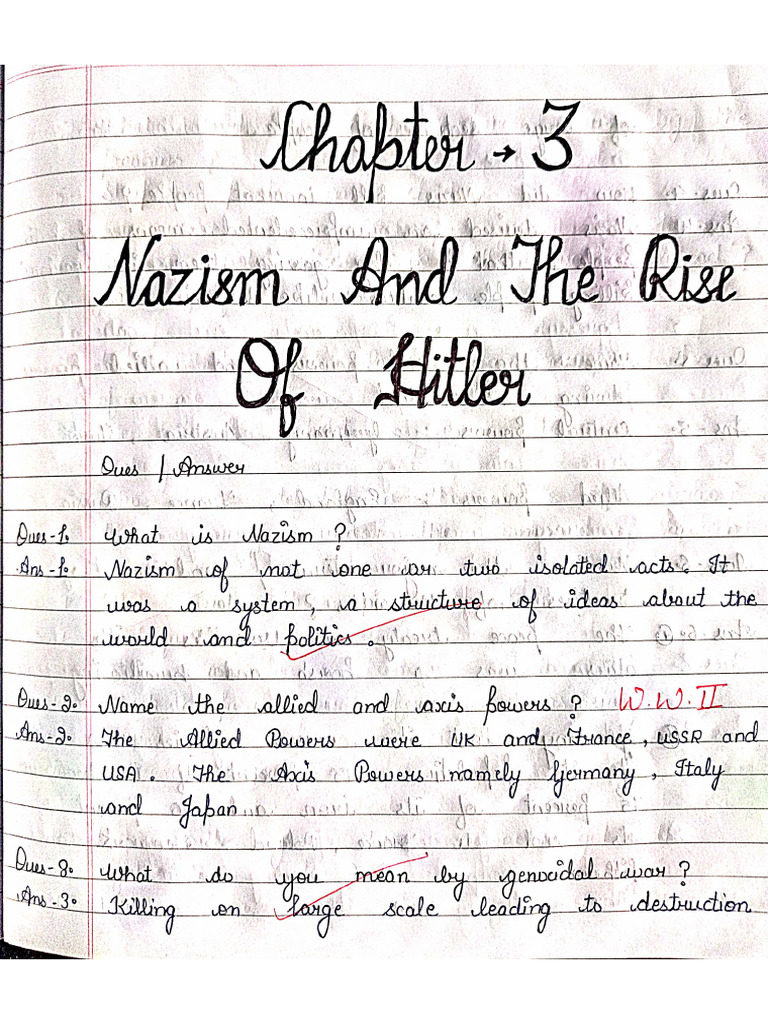 Chapter → 3
Nazism And The Rise
Of Hitler
Ques / Answer
Ques-1. What is Nazism ?
Ans-1. Nazism of not one or two isolated acts. It
was a system, a structure of ideas about the
world and politics.
Ques-2. Name the allied and axis powers ? W.W.II
Ans-2. The Allied Powers were UK and France, USSR and
USA. The Axis Powers namely Germany, Italy
and Japan
Ques-3. What do you mean by genocidal war?
Ans-3. Killing on large scale leading to destruction